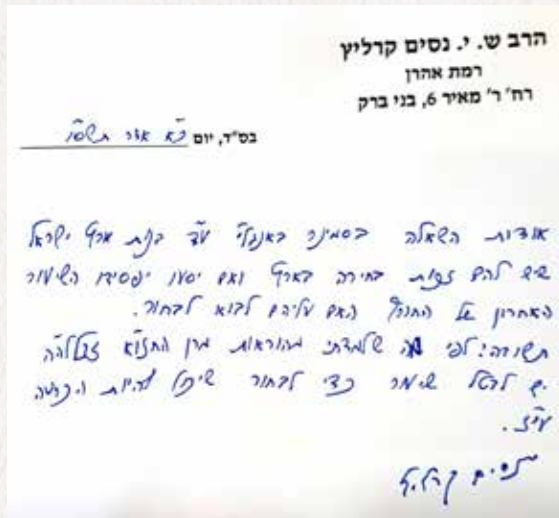 הרב ש. י. נסים קרליץ
רמת אהרן
רח' ר' מאיר 6, בני ברק
בס"ד, יום כ"א אדר תשס"ו
אודות השאלה בסמינר באנגלי' עד בנות ארץ ישראל
שיש להם זכות בחירה בארץ ואם יסעו יפסידו השיעור
האחרון של החורף האם עליהם לבוא לבחור.
תשובה: לפי מה שלמדתי מהוראות מרן החזו"א זצללה"ה
יש לבטל שימר כדי לבחור שיכול להיות הכרעה
עי"ז.
נסים קרליץ